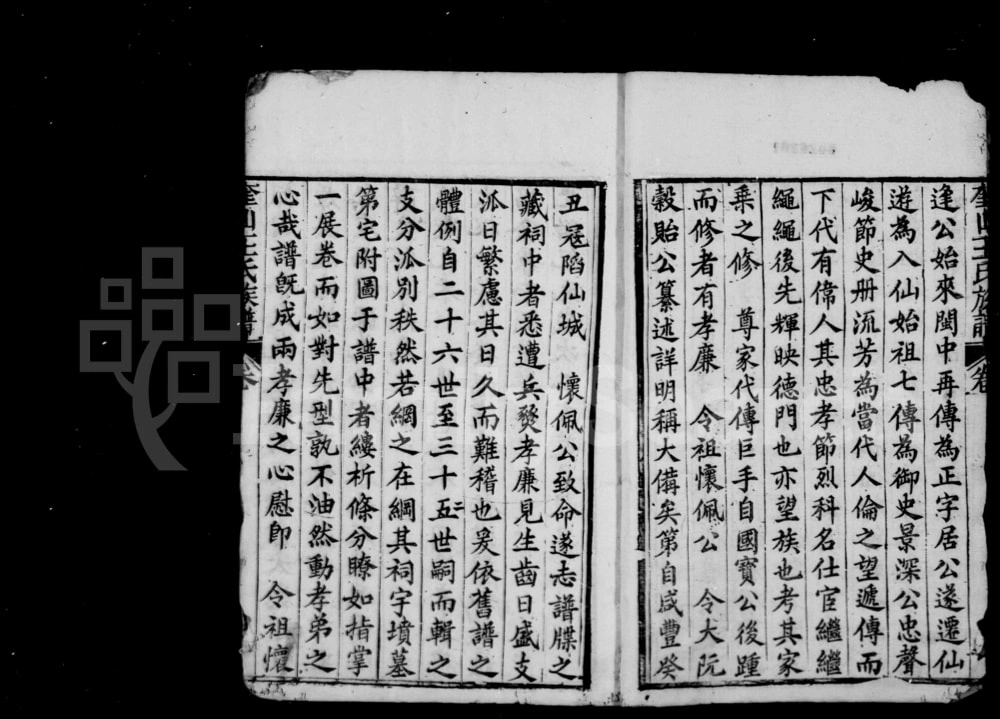 逢公始來閩中再傳為正字居公遂遷仙
遊為入仙始祖七傳為御史景深公忠聲
峻節史册流芳為當代人倫之望遞傳而
下代有偉人其忠孝節烈科名仕宦繼繼
繩繩後先輝映德門也亦望族也考其家
乘之修　尊家代傳巨手自國寶公後踵
而修者有孝廉　令祖懷佩公　令大阮
穀貽公纂述詳明稱大備矣第自咸豐癸
丑冦陷仙城　懷佩公致命遂志譜牒之
藏祠中者悉遭兵燹孝廉見生齒日盛支
派日繁慮其日久而難稽也爰依舊譜之
體例自二十六世至三十五世嗣而輯之
支分派別秩然若綱之在綱其祠宇墳墓
第宅附圖于譜中者縷析條分瞭如指掌
一展卷而如對先型孰不油然動孝弟之
心哉譜旣成兩孝廉之心慰卽　令祖懷